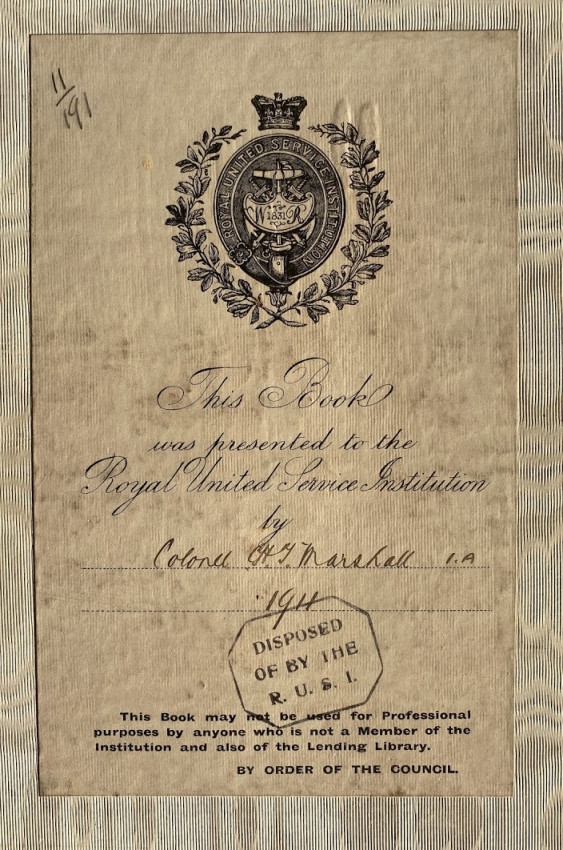 11/191
ROYAL UNITED SERVICE INSTITUTION
W R
1831
This Book
was presented to the
Royal United Service Institution
by
Colonel H.T. Marshall I.A
1911
DISPOSED
OF BY THE
R. U. S. I.
This Book may not be used for Professional
purposes by anyone who is not a Member of the
Institution and also of the Lending Library.
BY ORDER OF THE COUNCIL.